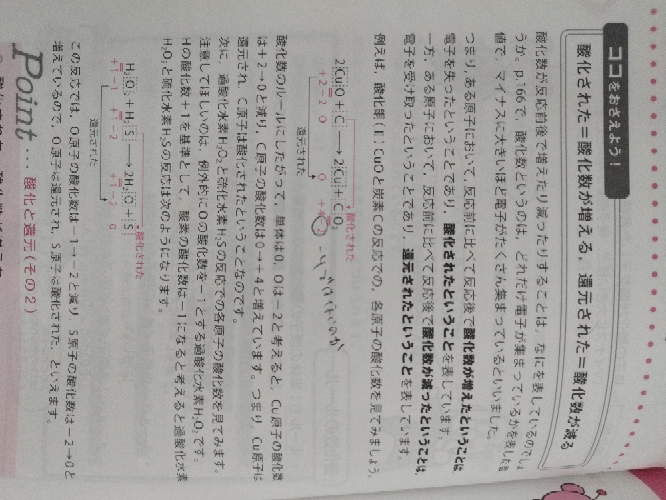 ココをおさえよう!
酸化された=酸化数が増える, 還元された=酸化数が減る
酸化数が反応前後で増えたり減ったりすることは, なにを表しているのでしょ
うか。p.166で, 酸化数というのは, どれだけ電子が集まっているかを表した
値で, マイナスに大きいほど電子がたくさん集まっているといいました。
つまり, ある原子において, 反応前に比べて反応後で酸化数が増えたということは
電子を失ったということであり, 酸化されたということを表しています。
一方, ある原子において, 反応前に比べて反応後で酸化数が減ったということは,
電子を受け取ったということであり, 還元されたということを表しています。
例えば, 酸化銅(Ⅱ)CuOと炭素Cの反応での, 各原子の酸化数を見てみましょう。
酸化された
2CuO + C → 2Cu + CO₂
+2 -2 0 0
還元された
酸化数のルールにしたがって, 単体は0, Oは-2と考えると, Cu原子の酸化数
は+2→0と減り, C原子の酸化数は0→+4と増えています。つまり, Cu原子は
還元され, C原子は酸化されたということなのです。
次に, 過酸化水素H₂O₂と硫化水素H₂Sの反応での各原子の酸化数を見てみます。
注意してほしいのは, 例外的にOの酸化数を-1とする過酸化水素H₂O₂です。
Hの酸化数+1を基準として, 酸素の酸化数は-1になると考えると過酸化水素
H₂O₂と硫化水素H₂Sの反応は次のようになります。
酸化された
H₂O₂ + H₂S → 2H₂O + S
+1 -1 +1 -2 +1 -2 0
還元された
この反応では, O原子の酸化数は-1→-2と減り, S原子の酸化数は-2→0と
増えているので, O原子は還元され, S原子は酸化された, といえます。
Point … 酸化と還元(その2)